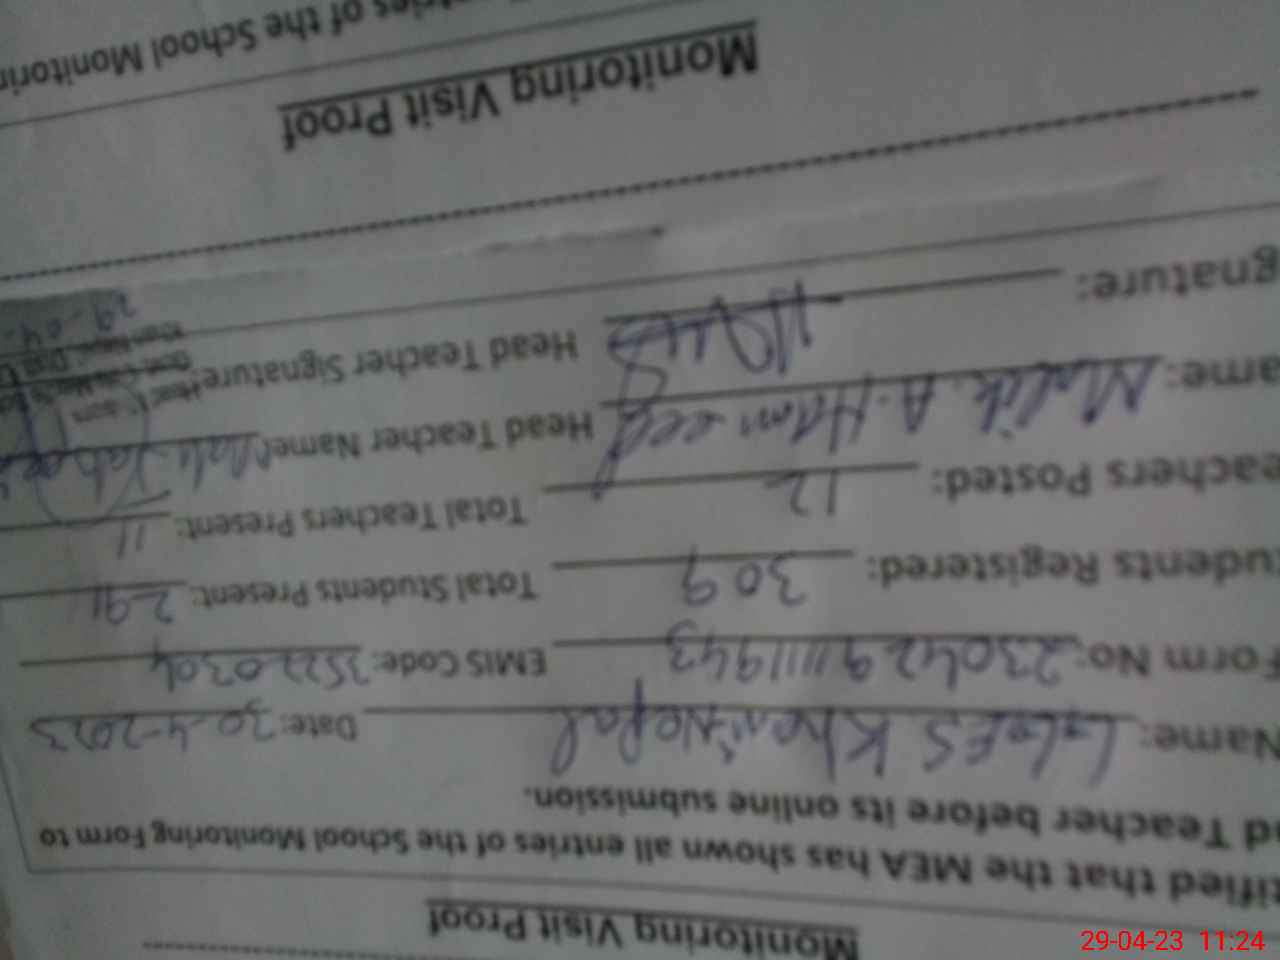 Monitoring Visit Proof
tified that the MEA has shown all entries of the School Monitoring Form to
d Teacher before its online submission.
Name: Khan Nepal Date: 30-4-2023
Form No: 230429111943 EMIS Code: 35220304
udents Registered: 309 Total Students Present: 291
eachers Posted: 12 Total Teachers Present: 11
ame: Malik A. Hameed Head Teacher Name:
gnature: Head Teacher Signature:
29-04-
Monitoring Visit Proof
ntries of the School Monitorin
29-04-23 11:24